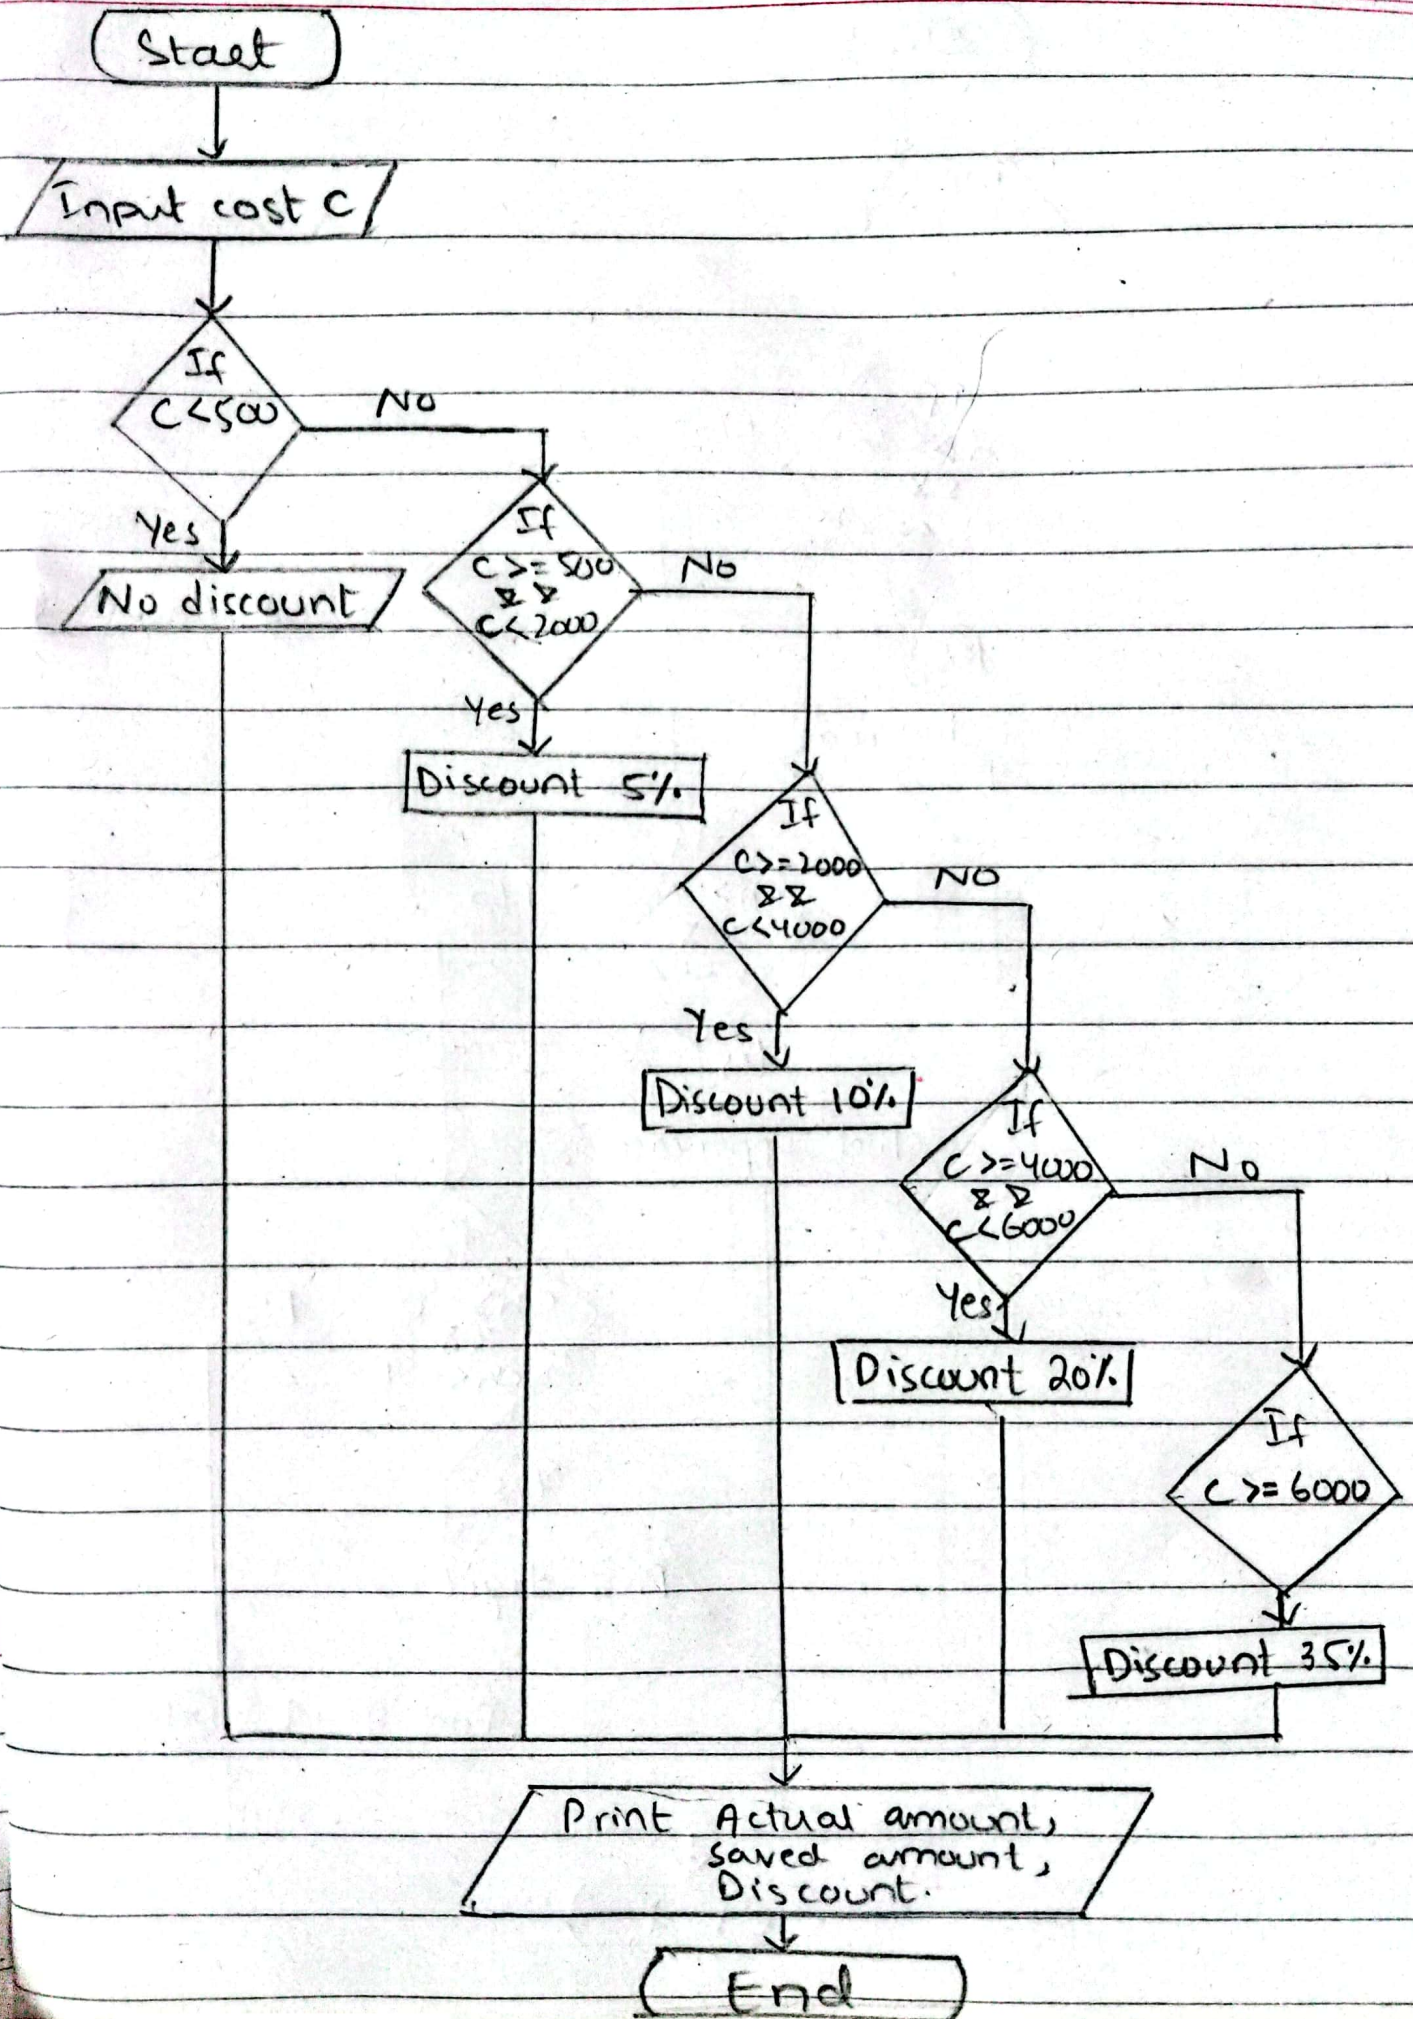 Start
Input cost C
If
C<500
No
Yes
No discount
If
C>=500
&&
C<2000
No
Yes
Discount 5%
If
C>=2000
&&
C<4000
NO
Yes
Discount 10%
If
C>=4000
&&
C<6000
No
Yes
Discount 20%
If
C>=6000
Discount 35%
Print Actual amount,
saved amount,
Discount.
End